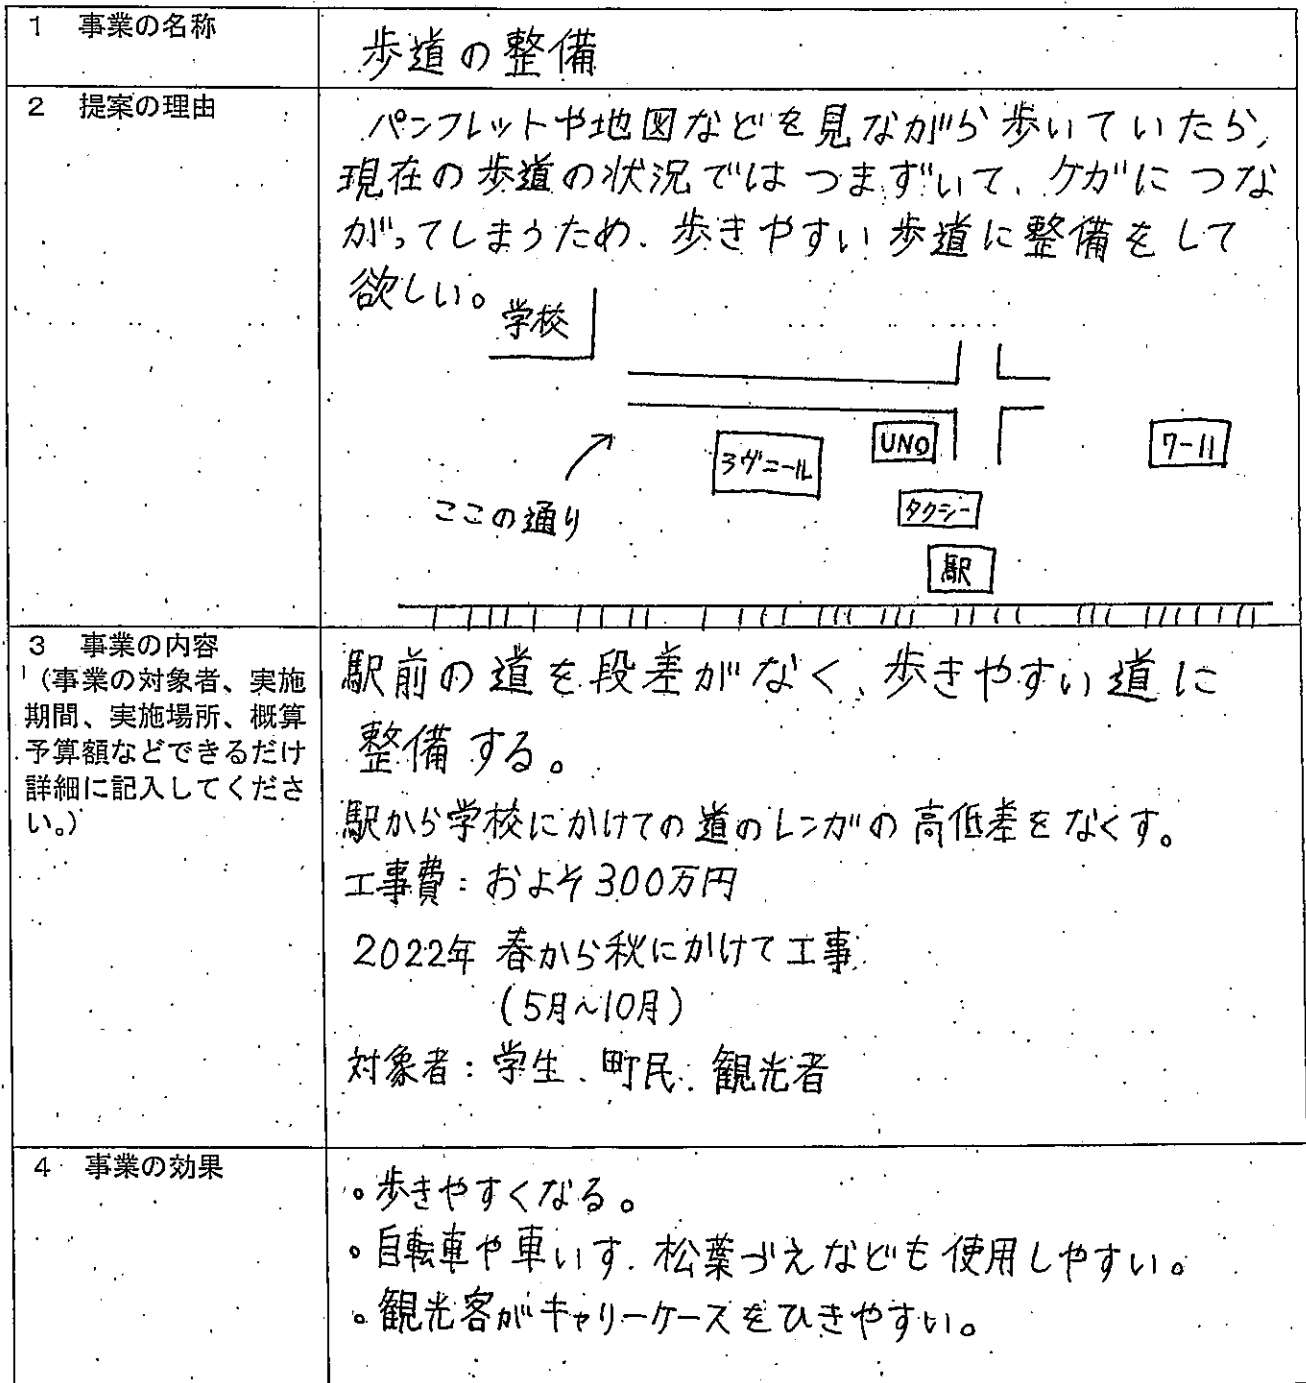 1 事業の名称
歩道の整備
2 提案の理由
パンフレットや地図などを見ながら歩いていたら、
現在の歩道の状況ではつまずいて、ケガにつな
がってしまうため、歩きやすい歩道に整備をして
欲しい。
学校
UNO
7-11
ヨヴニール
ここの通り
タクシー
駅
3 事業の内容
(事業の対象者、実施
期間、実施場所、概算
予算額などできるだけ
詳細に記入してくださ
い。)
駅前の道を段差がなく、歩きやすい道に
整備する。
駅から学校にかけての道のレンガの高低差をなくす。
工事費：およそ300万円
2022年 春から秋にかけて工事
(5月~10月)
対象者：学生、町民、観光者
4 事業の効果
。歩きやすくなる。
。自転車や車いす、松葉づえなども使用しやすい。
。観光客がキャリーケースをひきやすい。